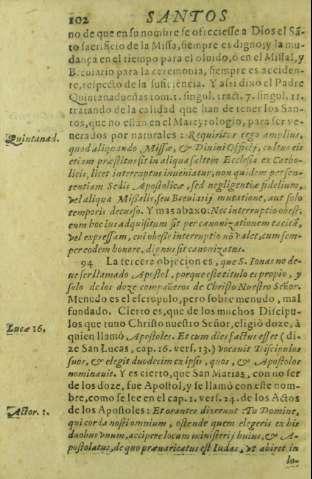 102 SANTOS
no de que en su nombre se ofreciesse a Dios el Sã-
to sacrificio de la Missa, siempre es digno; y la mu-
dança en el tiempo para el oluido, ò en el Missal, y
Breuiario para la ceremonia, siempre es acciden-
te, respecto de la suficiencia. Y assi dixo el Padre
Quintanadueñas tom. 1. singul. tract. 7. singul. 11.
tratando de la calidad que han de tener los San-
tos, que no estàn en el Martyrologio, para ser ve-
Quintanad.
nerados por naturales: Requiritur ergo amplius,
quod aliquando Missæ, & Diuini Officij, cultus eis
etiam præstitus sit in aliqua saltem Ecclesia ex Catho-
licis, licet interruptus inueniatur, non quidem per sen-
tentiam Sedis Apostolicæ, sed negligentia fidelium,
vel aliqua Missalis, seu Breuiarij mutatione, aut solo
temporis decurso. Y mas abaxo: Nec interruptio obest;
cum hoc ius adquisitum sit per canonizationem tacitã,
vel expressam, cui obesse interruptio nõ valet, cum sem-
per eodem honore, dignus sit canonizatus.
94 La tercera objecion es, que S. Ionas no de-
ue ser llamado Apostol, porque este titulo es propio, y
solo de los doze compañeros de Christo Nuestro Señor.
Menudo es el escrupulo, pero sobre menudo, mal
fundado. Cierto es, que de los muchos Discipu-
los que tuuo Christo nuestro Señor, eligiò doze, à
Luca 16.
quien llamò Apostoles. Et cum dies factus esset (di-
ze San Lucas, cap. 16. vers. 13.) vocauit Discipulos
suos, & elegit duodecim ex ipsis, quos, & Apostolos
nominauit. Y es cierto, que San Marias, con no ser
de los doze, fue Apostol, y se llamò con este nom-
bre, como se lee en el cap. 1. vers. 24. de los Actos
Actor. 1.
de los Apostoles: Et orantes dixerunt Tu Domine,
qui corda nosti omnium, ostende quem elegeris ex his
duobus vnum, accipere locum ministerij huius, & A-
postolatus, de quo præuaricatus est Iudas, vt abiret in
lo-